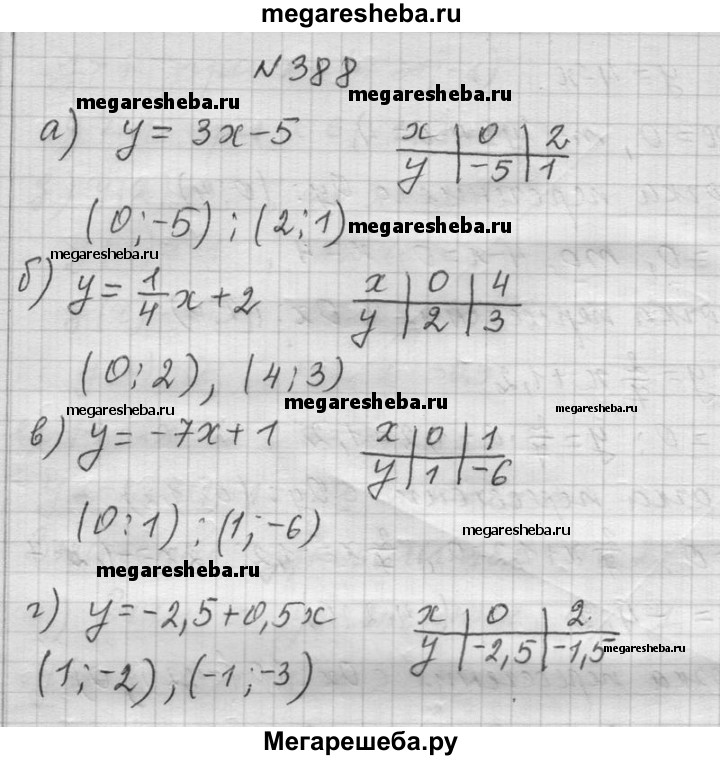 megaresheba.ru
N 388
megaresheba.ru
а) y = 3x - 5
x | 0 | 2
y | -5 | 1
(0; -5) ; (2; 1)
megaresheba.ru
megaresheba.ru
б) y = 1/4 x + 2
x | 0 | 4
y | 2 | 3
(0; 2), (4; 3)
megaresheba.ru
megaresheba.ru
megaresheba.ru
в) y = -7x + 1
x | 0 | 1
y | 1 | -6
(0; 1) ; (1; -6)
megaresheba.ru
megaresheba.ru
г) y = -2,5 + 0,5x
x | 0 | 2
y | -2,5 | -1,5
megaresheba.ru
(1; -2), (-1; -3)
Мегарешеба.ру